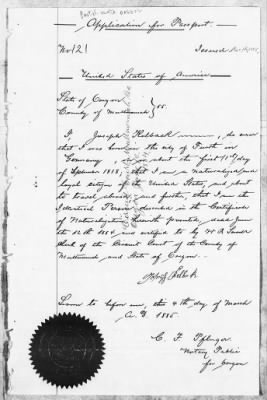 Application for Passport.
No 121 Issued
United States of America
State of Oregon
County of Multnomah } SS.
I, Joseph Holback, do swear
that I was born in the city of Fürth in
Germany, on or about the first (1st) day
of 1818, that I am a naturalized and
loyal citizen of the United States, and about
to travel abroad, and further, that I am the
identical Person in the Certificate
of Naturalization herewith presented, dated June
the 12th 1854 and certified to by
Clerk of the Circuit Court of the County of
Multnomah and State of Oregon.
Sworn to before me, this 4th day of March
A. D. 1885.
C. F. Pfluger
Notary Public
for Oregon